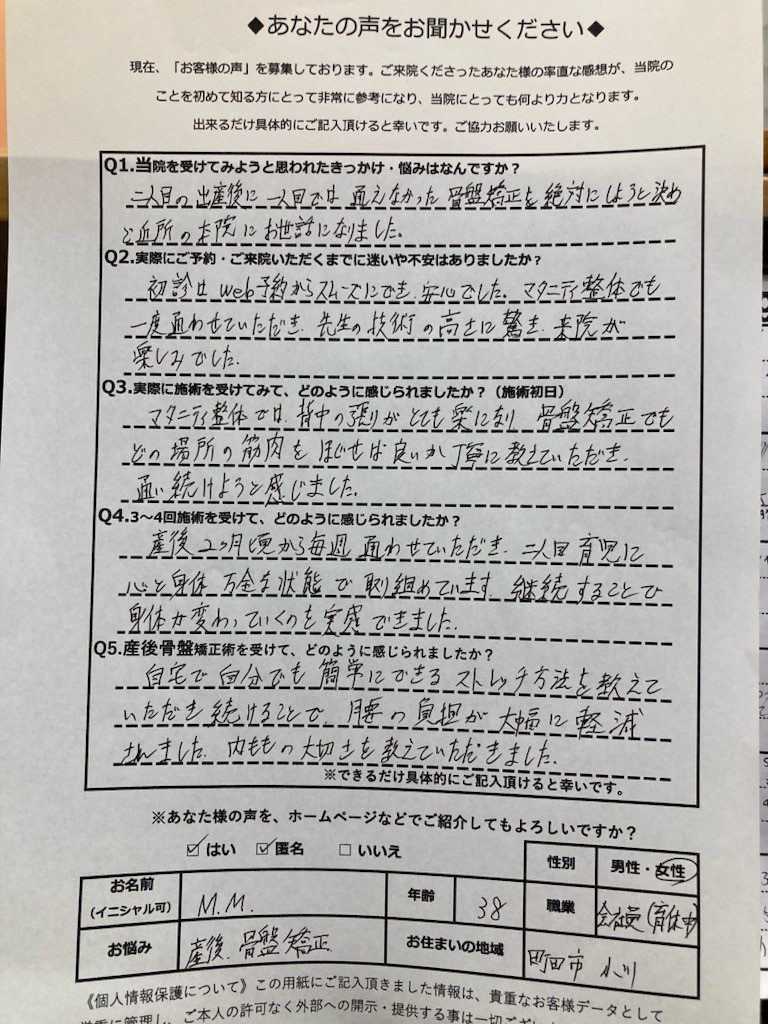 ◆あなたの声をお聞かせください◆
現在、「お客様の声」を募集しております。ご来院くださったあなた様の率直な感想が、当院の
ことを初めて知る方にとって非常に参考になり、当院にとっても何より力となります。
出来るだけ具体的にご記入頂けると幸いです。ご協力お願いいたします。
Q1.当院を受けてみようと思われたきっかけ・悩みはなんですか？
二人目の出産後に一人目では通えなかった骨盤矯正を絶対にしようと決め
と近所の本院にお世話になりました。
Q2.実際にご予約・ご来院いただくまでに迷いや不安はありましたか？
初診はweb予約からスムーズにでき、安心でした。マタニティ整体でも
一度通わせていただき、先生の技術の高さに驚き、来院が
楽しみでした。
Q3.実際に施術を受けてみて、どのように感じられましたか？（施術初日）
マタニティ整体では、背中の張りがとても楽になり 骨盤矯正でも
どの場所の筋肉をほぐせば良いか丁寧に教えていただき、
通い続けようと感じました。
Q4.3～4回施術を受けて、どのように感じられましたか？
産後2ヶ月頃から毎週通わせていただき、二人目育児に
心と身体 万全な状態で取り組めています。継続することで
身体が変わっていくのを実感できました。
Q5.産後骨盤矯正術を受けて、どのように感じられましたか？
自宅で自分でも簡単にできるストレッチ方法を教えて
いただき続けることで、腰の負担が大幅に軽減
されました。内ももの大切さを教えていただきました。
※できるだけ具体的にご記入頂けると幸いです。
※あなた様の声を、ホームページなどでご紹介してもよろしいですか？
☑はい ☑匿名 □いいえ
性別 男性・女性
お名前（イニシャル可） M.M. 年齢 38 職業 会社員（育休中）
お悩み 産後、骨盤矯正 お住まいの地域 町田市 小川
《個人情報保護について》この用紙にご記入頂きました情報は、貴重なお客様データとして
厳重に管理し、ご本人の許可なく外部への開示・提供する事は一切ござい